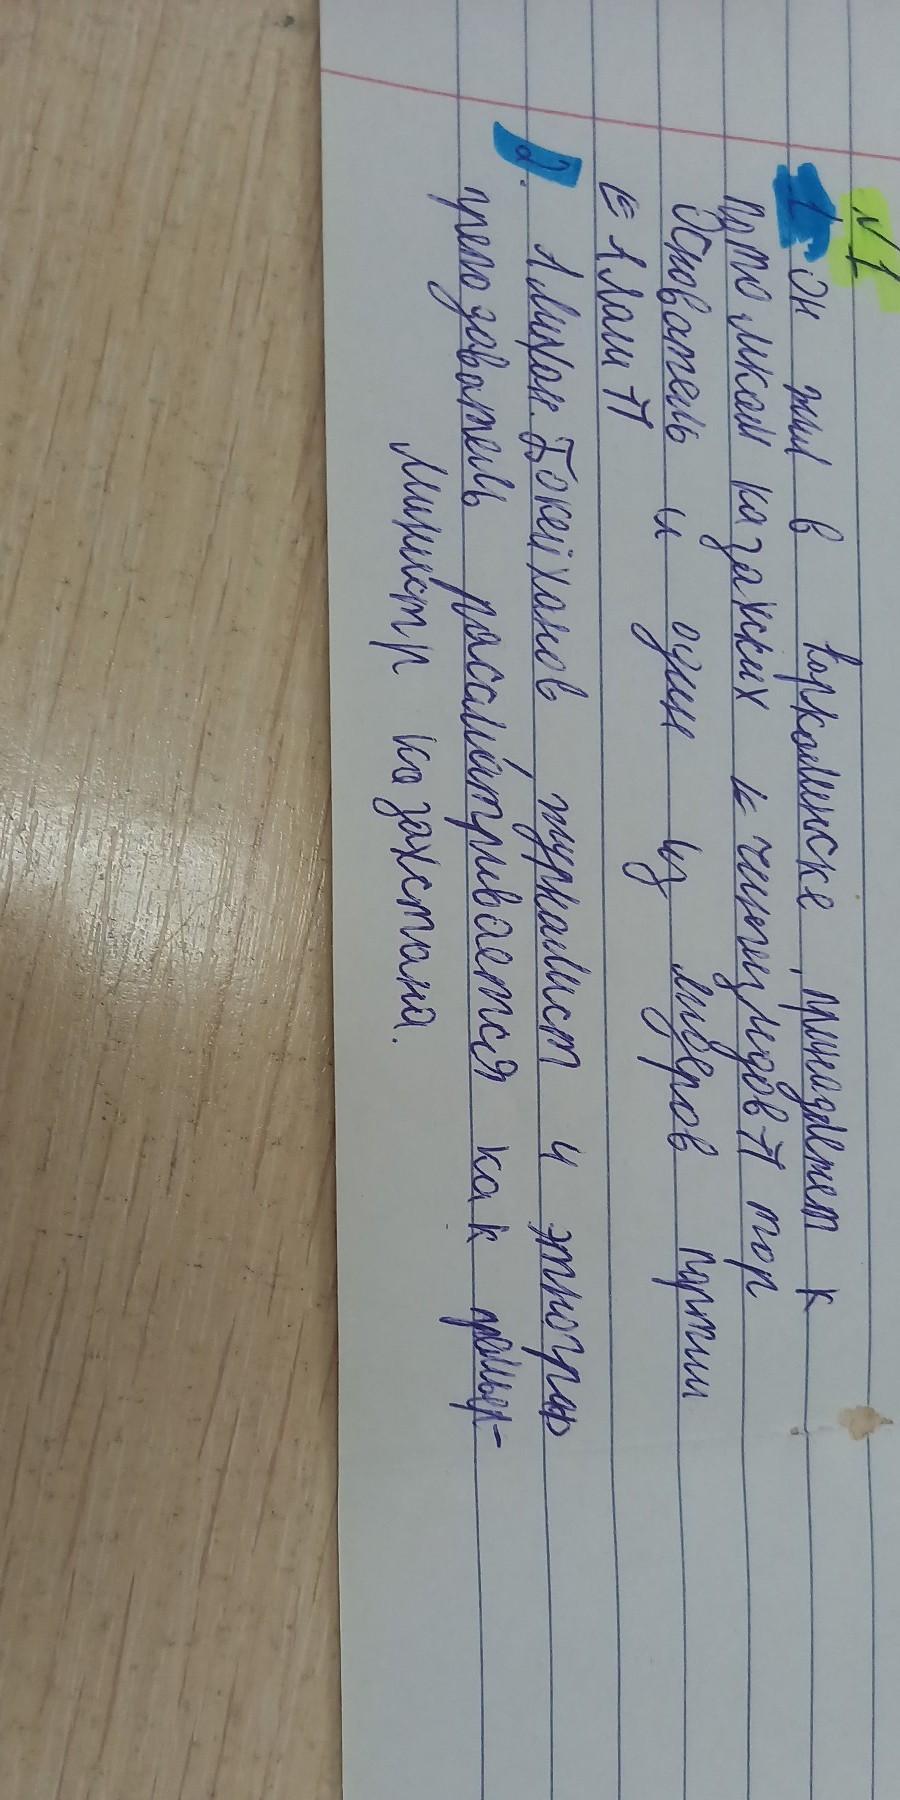 №1
1. Он жил в Каркалинске, принадлежит к
потомком казахских «чингизидов» тор
Основатель и один из лидеров партии
«Алаш»
2. Алихан Бокейханов журналист и этнограф
преподаватель рассматривается как премьер-
министр казахстана.